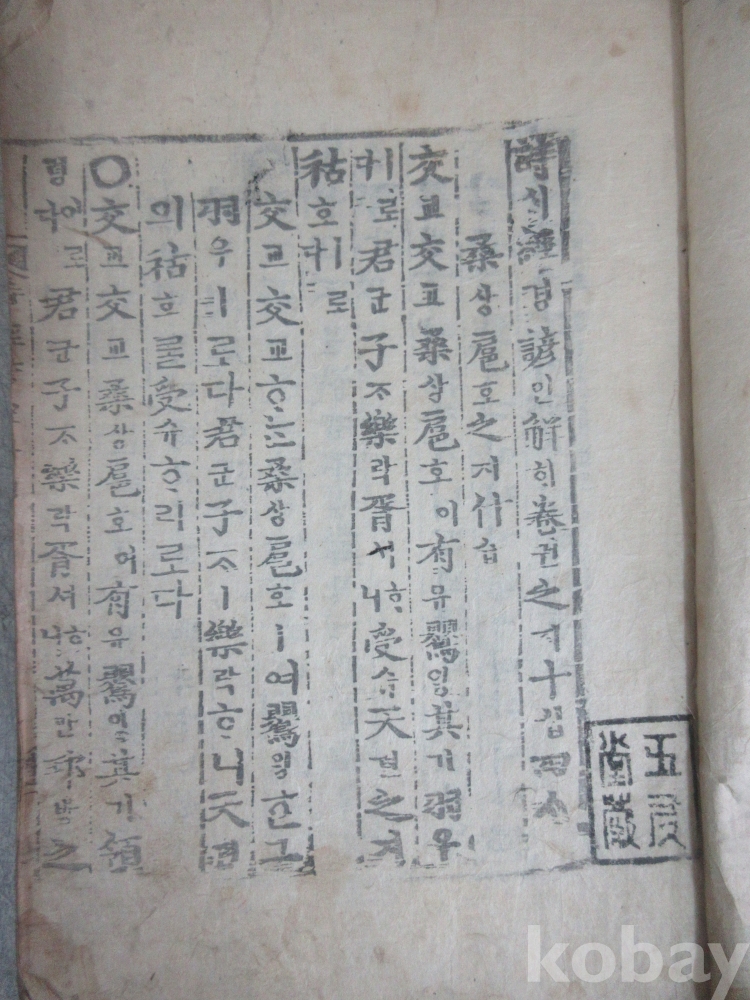 詩시經경諺언解ᄒᆡ卷권之지十십四ᄉᆞ
桑상扈호之지什십
交교交교桑상扈호이有유鶯ᄋᆡᆼ其기羽우
ㅣ로다君군子ᄌᆞ樂락胥셔ᄒᆞ니受슈天텬之지
祜호ㅣ로다
交교交교ᄒᆞᆫ桑상扈호ㅣ여鶯ᄋᆡᆼᄒᆞᆫ그
羽우ㅣ로다君군子ᄌᆞㅣ樂락ᄒᆞ니天텬
의祜호를受슈ᄒᆞ리로다
○交교交교桑상扈호여有유鶯ᄋᆡᆼ其기領
령이로다君군子ᄌᆞ樂락胥셔ᄒᆞ니萬만邦방之
堂藏
kobay